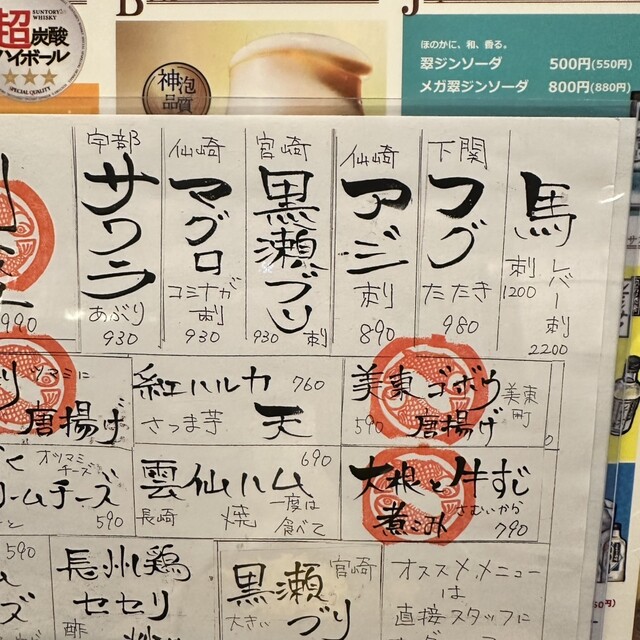 SUNTORY WHISKY
超炭酸
ハイボール
SPECIAL QUALITY
神泡
品質
ほのかに、和、香る。
翠ジンソーダ 500円(550円)
メガ翠ジンソーダ 800円(880円)
馬
刺 1200
レバー刺 2200
下関
フグ
たたき
980
仙崎
アジ
刺
890
宮崎
黒瀬ブリ
930 刺
仙崎
マグロ
コミナガ
刺
930
宇部
サワラ
あぶり
930
990
ツマミに
唐揚げ
紅ハルカ 760
さつま芋 天
美東ゴボウ
美東町
590 唐揚げ
オツマミ
チーズ
ームチーズ
590
雲仙ハム 690
長崎 焼 一度は
食べて
大根と牛すじ
煮こみ さむいから
790
590
長州鶏
セセリ
酢
黒瀬 宮崎
大きい ブリ
オススメメニュー
は
直接スタッフに